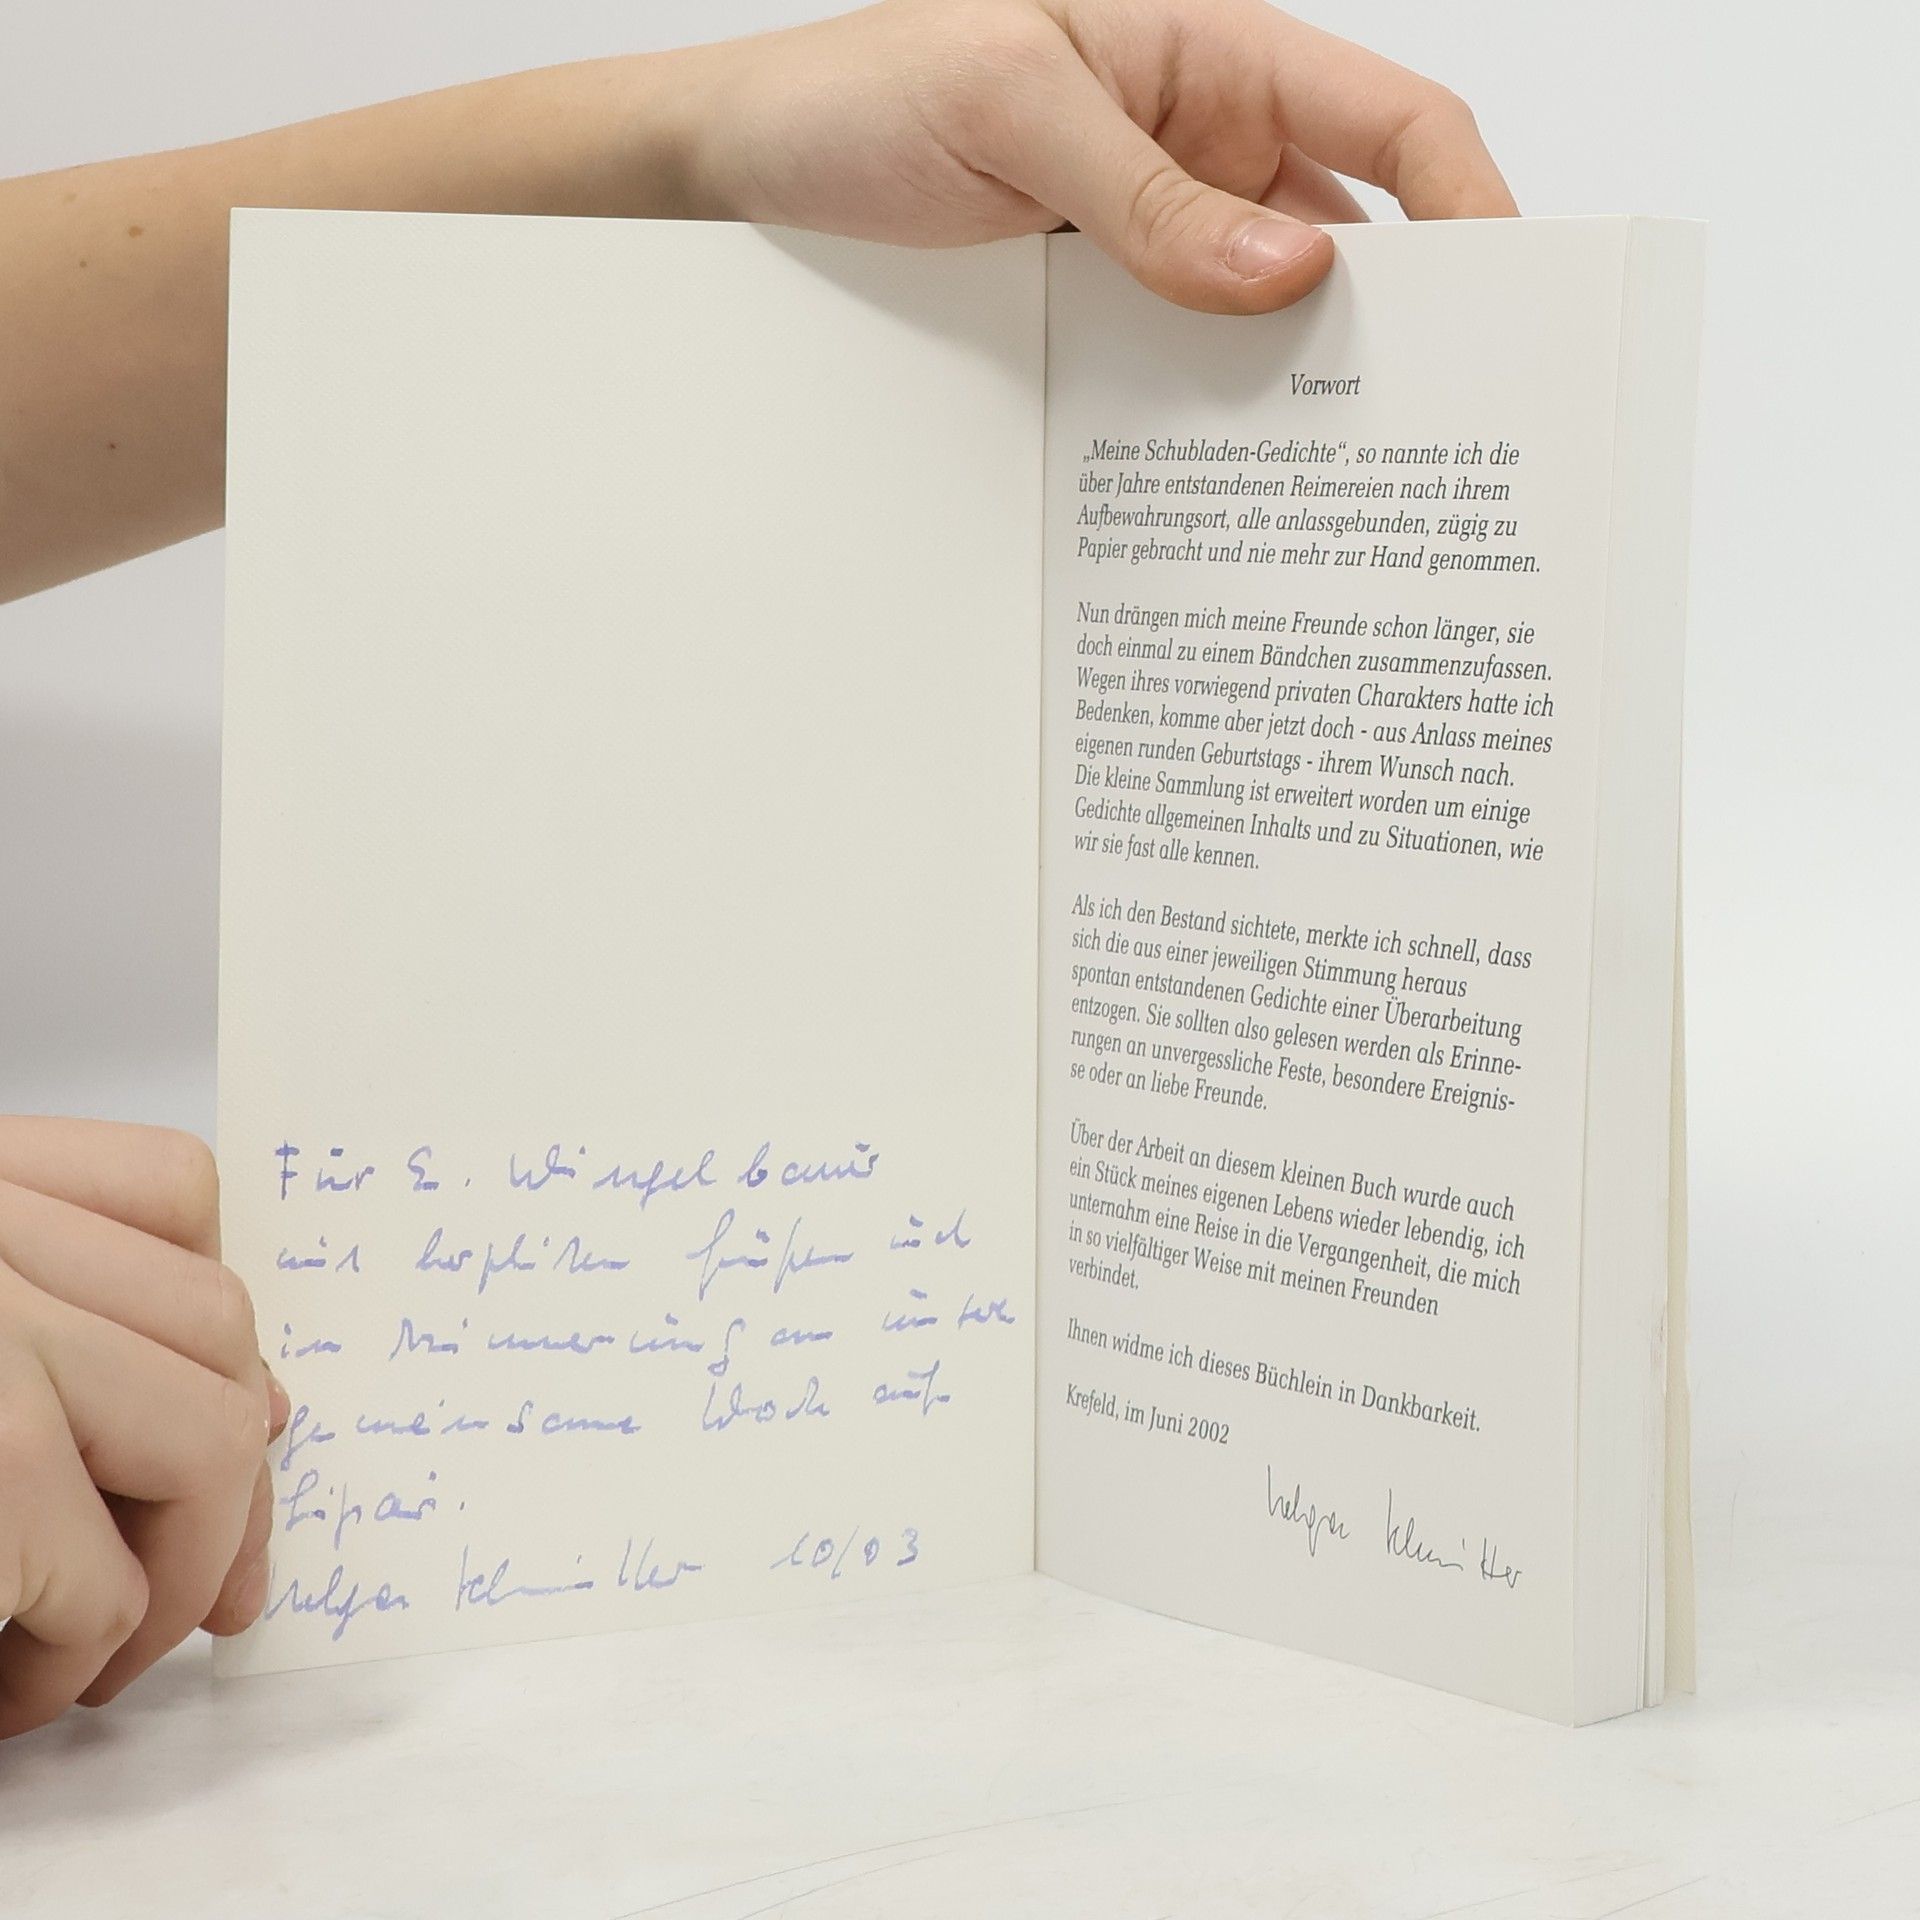 Für E. Wingelbauer
mit herzlichen Grüßen und
in Erinnerung an unsere
gemeinsame Woche auf
Lipari.
Helga Schmitter 10/03
Vorwort
„Meine Schubladen-Gedichte“, so nannte ich die
über Jahre entstandenen Reimereien nach ihrem
Aufbewahrungsort, alle anlassgebunden, zügig zu
Papier gebracht und nie mehr zur Hand genommen.
Nun drängen mich meine Freunde schon länger, sie
doch einmal zu einem Bändchen zusammenzufassen.
Wegen ihres vorwiegend privaten Charakters hatte ich
Bedenken, komme aber jetzt doch - aus Anlass meines
eigenen runden Geburtstags - ihrem Wunsch nach.
Die kleine Sammlung ist erweitert worden um einige
Gedichte allgemeinen Inhalts und zu Situationen, wie
wir sie fast alle kennen.
Als ich den Bestand sichtete, merkte ich schnell, dass
sich die aus einer jeweiligen Stimmung heraus
spontan entstandenen Gedichte einer Überarbeitung
entzogen. Sie sollten also gelesen werden als Erinne-
rungen an unvergessliche Feste, besondere Ereignis-
se oder an liebe Freunde.
Über der Arbeit an diesem kleinen Buch wurde auch
ein Stück meines eigenen Lebens wieder lebendig, ich
unternahm eine Reise in die Vergangenheit, die mich
in so vielfältiger Weise mit meinen Freunden
verbindet.
Ihnen widme ich dieses Büchlein in Dankbarkeit.
Krefeld, im Juni 2002
Helga Schmitter